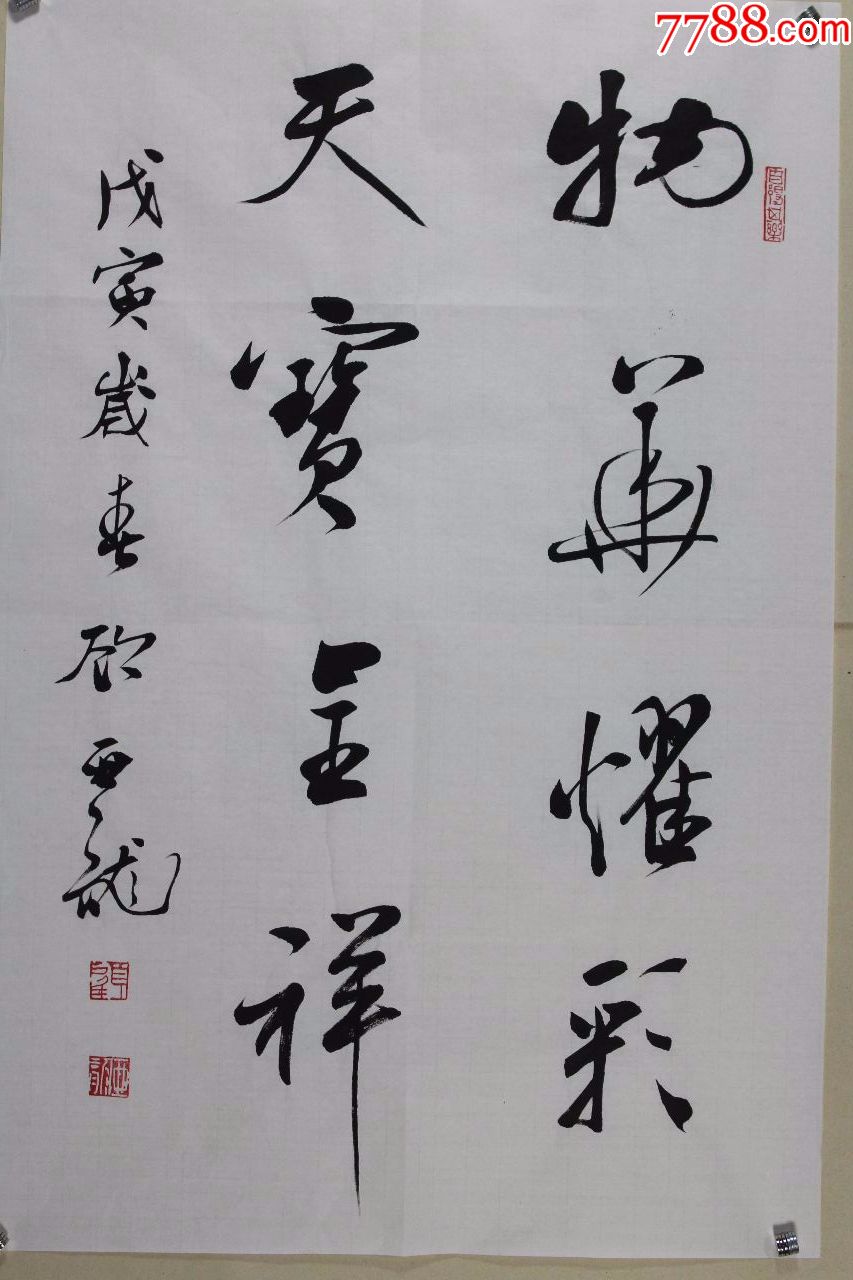 7788.com
物華燿彩
天寶呈祥
戊寅歲春顧亞龍